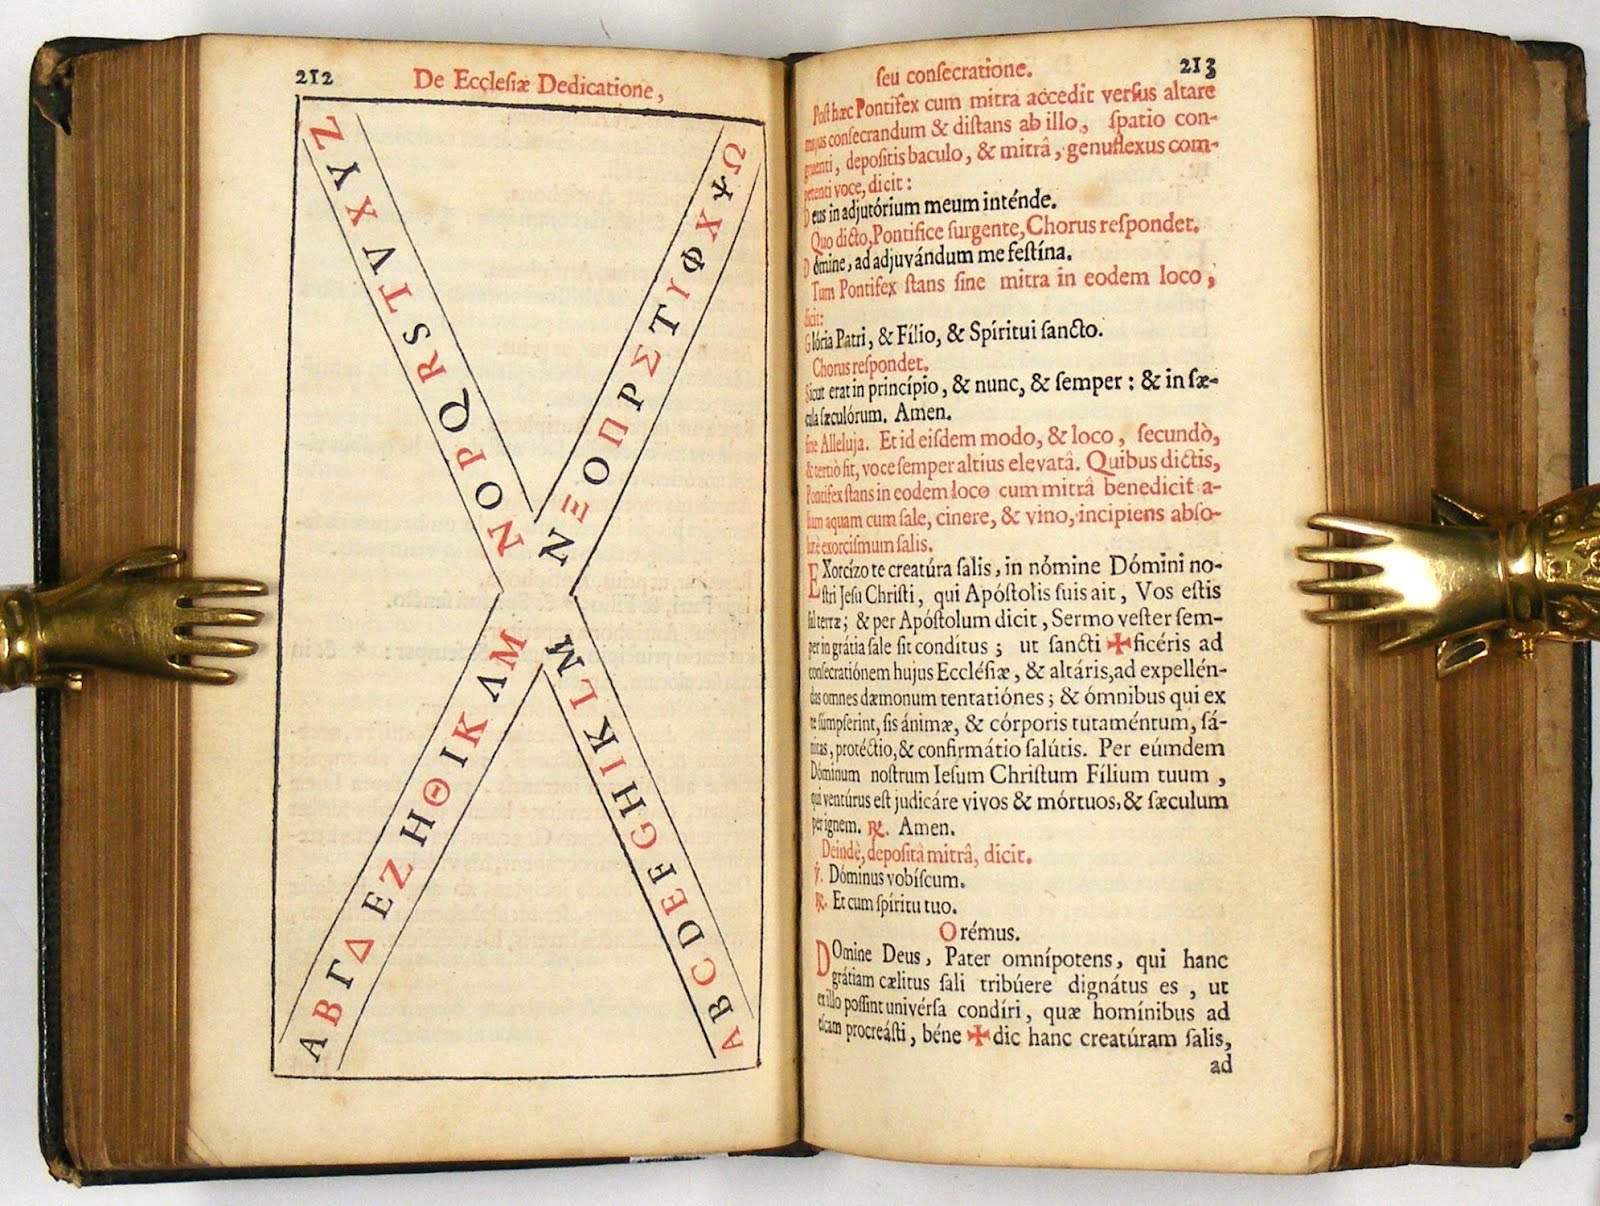 212
De Ecclesiæ Dedicatione,
Α Β Γ Δ Ε Ζ Η Θ Ι Κ Λ Μ Ν Ξ Ο Π Ρ Σ Τ Υ Φ Χ Ψ Ω
A B C D E F G H I K L M N O P Q R S T V X Y Z
ſeu conſecratione.
213
Poſt hæc Pontifex cum mitra accedit verſus altare
majus conſecrandum & diſtans ab illo, ſpatio con-
gruenti, depoſitis baculo, & mitrâ, genuflexus com-
petenti voce, dicit:
Deus in adjutórium meum inténde.
Quo dicto, Pontifice ſurgente, Chorus reſpondet.
Dómine, ad adjuvándum me feſtína.
Tum Pontifex ſtans ſine mitra in eodem loco,
dicit:
Glória Patri, & Fílio, & Spirítui ſancto.
Chorus reſpondet.
Sicut erat in princípio, & nunc, & ſemper: & in ſæ-
cula ſæculórum. Amen.
ſine Alleluja. Et id eiſdem modo, & loco, ſecundò,
& tertiò fit, voce ſemper altius elevatâ. Quibus dictis,
Pontifex ſtans in eodem loco cum mitrâ benedicit a-
liam aquam cum ſale, cinere, & vino, incipiens abſo-
lutè exorciſmum ſalis.
EXorcízo te creatúra ſalis, in nómine Dómini no-
ſtri Jeſu Chriſti, qui Apóſtolis ſuis ait, Vos eſtis
ſal terræ; & per Apóſtolum dicit, Sermo veſter ſem-
per in grátia ſale ſit condítus; ut ſancti ✠ ficéris ad
conſecratiónem hujus Eccléſiæ, & altáris, ad expellén-
das omnes dæmonum tentatiónes; & ómnibus qui ex
te ſúmpſerint, ſis ánimæ, & córporis tutaméntum, ſá-
nitas, protéctio, & confirmátio ſalútis. Per eúmdem
Dóminum noſtrum Ieſum Chriſtum Fílium tuum,
qui ventúrus eſt judicáre vivos & mórtuos, & ſæculum
per ignem. ℟. Amen.
Deindè, depoſitâ mitrâ, dicit.
℣. Dóminus vobíſcum.
℟. Et cum ſpíritu tuo.
Orémus.
DOmine Deus, Pater omnípotens, qui hanc
grátiam cælitus ſali tribúere dignátus es, ut
ex illo poſſint univérſa condíri, quæ homínibus ad
eſcam procreáſti, béne ✠ dic hanc creatúram ſalis,
ad